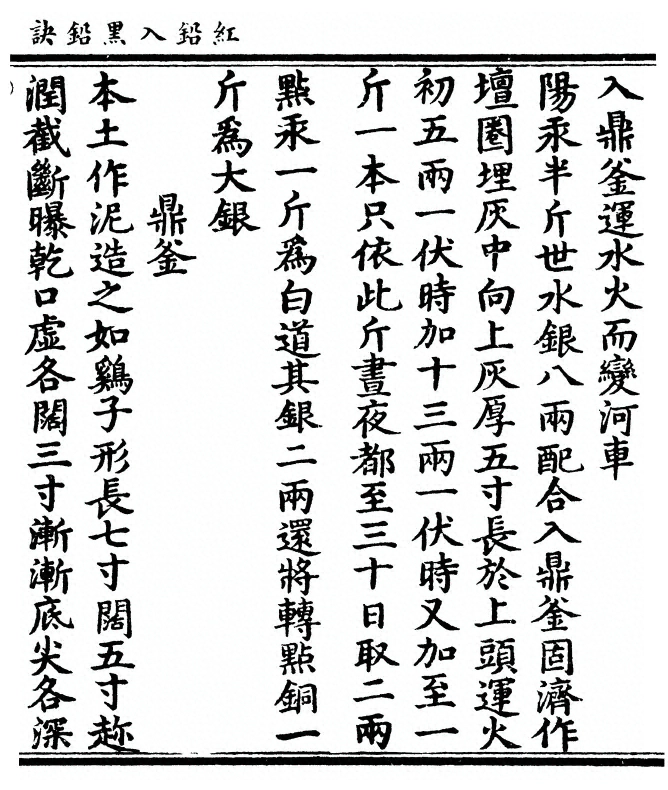 紅鉛入黑鉛訣
入鼎釜運水火而變河車
陽汞半斤世水銀八兩配合入鼎釜固濟作
壇圈埋灰中向上灰厚五寸長於上頭運火
初五兩一伏時加十三兩一伏時又加至一
斤一本只依此斤晝夜都至三十日取二兩
點汞一斤爲白道其銀二兩還將轉點銅一
斤爲大銀
鼎釜
本土作泥造之如鷄子形長七寸闊五寸趂
潤截斷曝乾口虛各闊三寸漸漸底尖各深